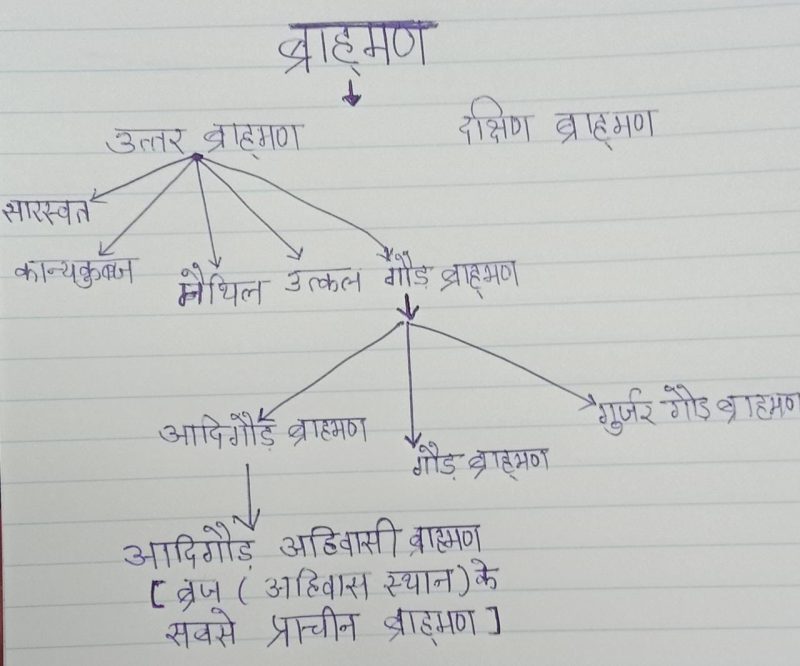 ब्राह्मण
उत्तर ब्राह्मण
दक्षिण ब्राह्मण
सारस्वत
कान्यकुब्ज
मैथिल
उत्कल
गौड़ ब्राह्मण
आदिगौड़ ब्राह्मण
गौड़ ब्राह्मण
गुर्जर गौड़ ब्राह्मण
आदिगौड़ अहिवासी ब्राह्मण
[ ब्रज ( अहिवास स्थान) के
सबसे प्राचीन ब्राह्मण ]